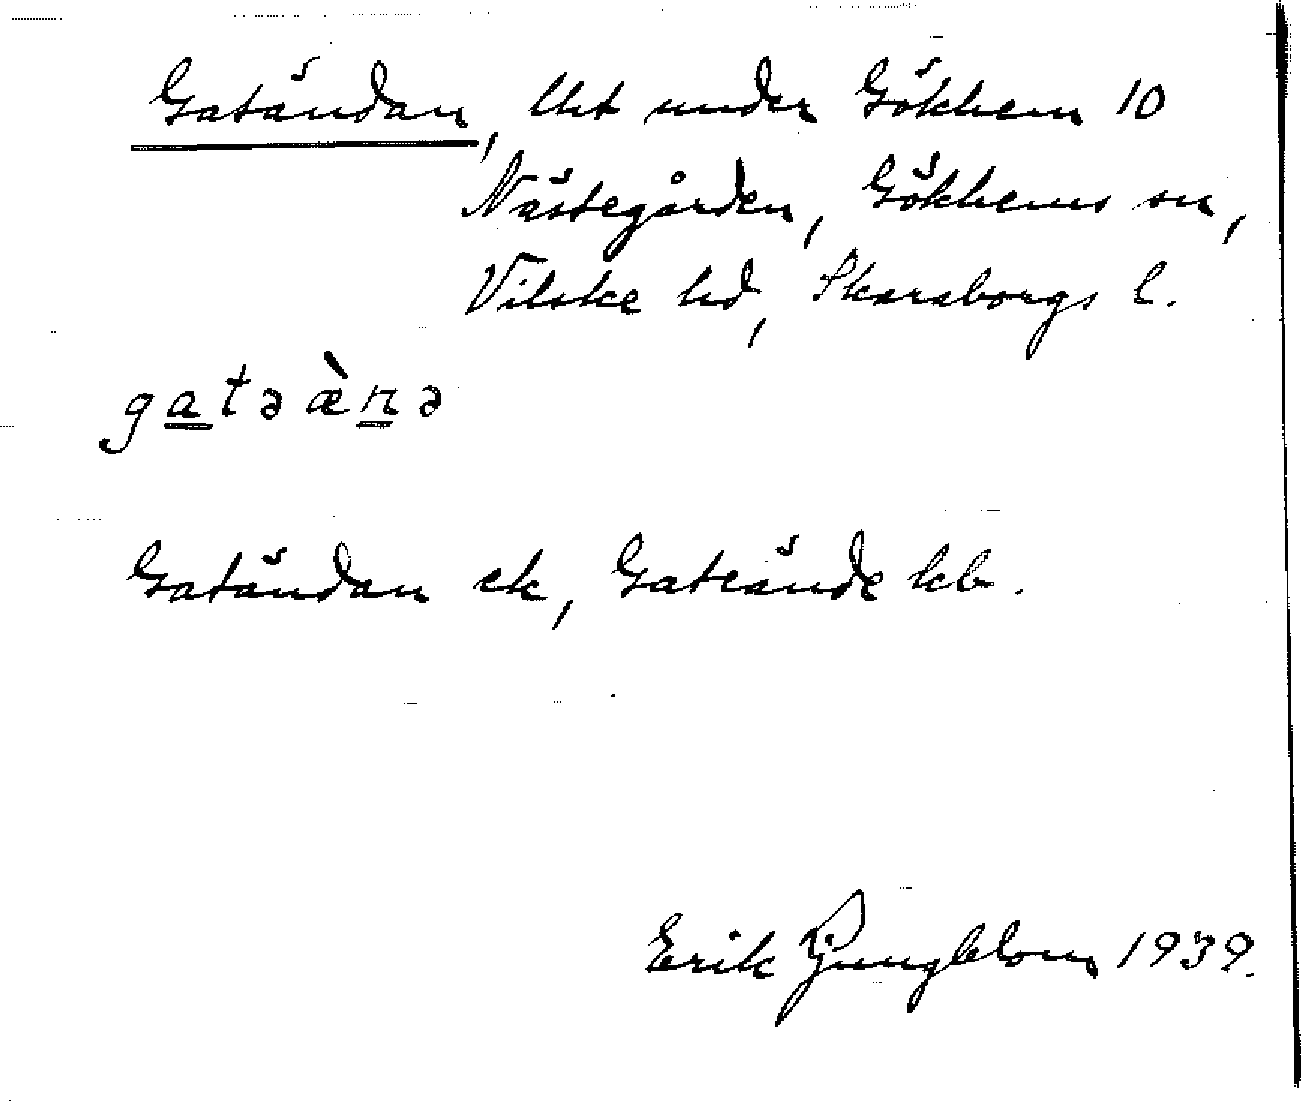 Gatändan, lht under Gökhem 10
Nästegården, Gökhems sn,
Vilske hd, Skaraborgs l.
gatəæ̀nə
Gatändan ek, Gateände kb.
Erik Ljungblom 1939.